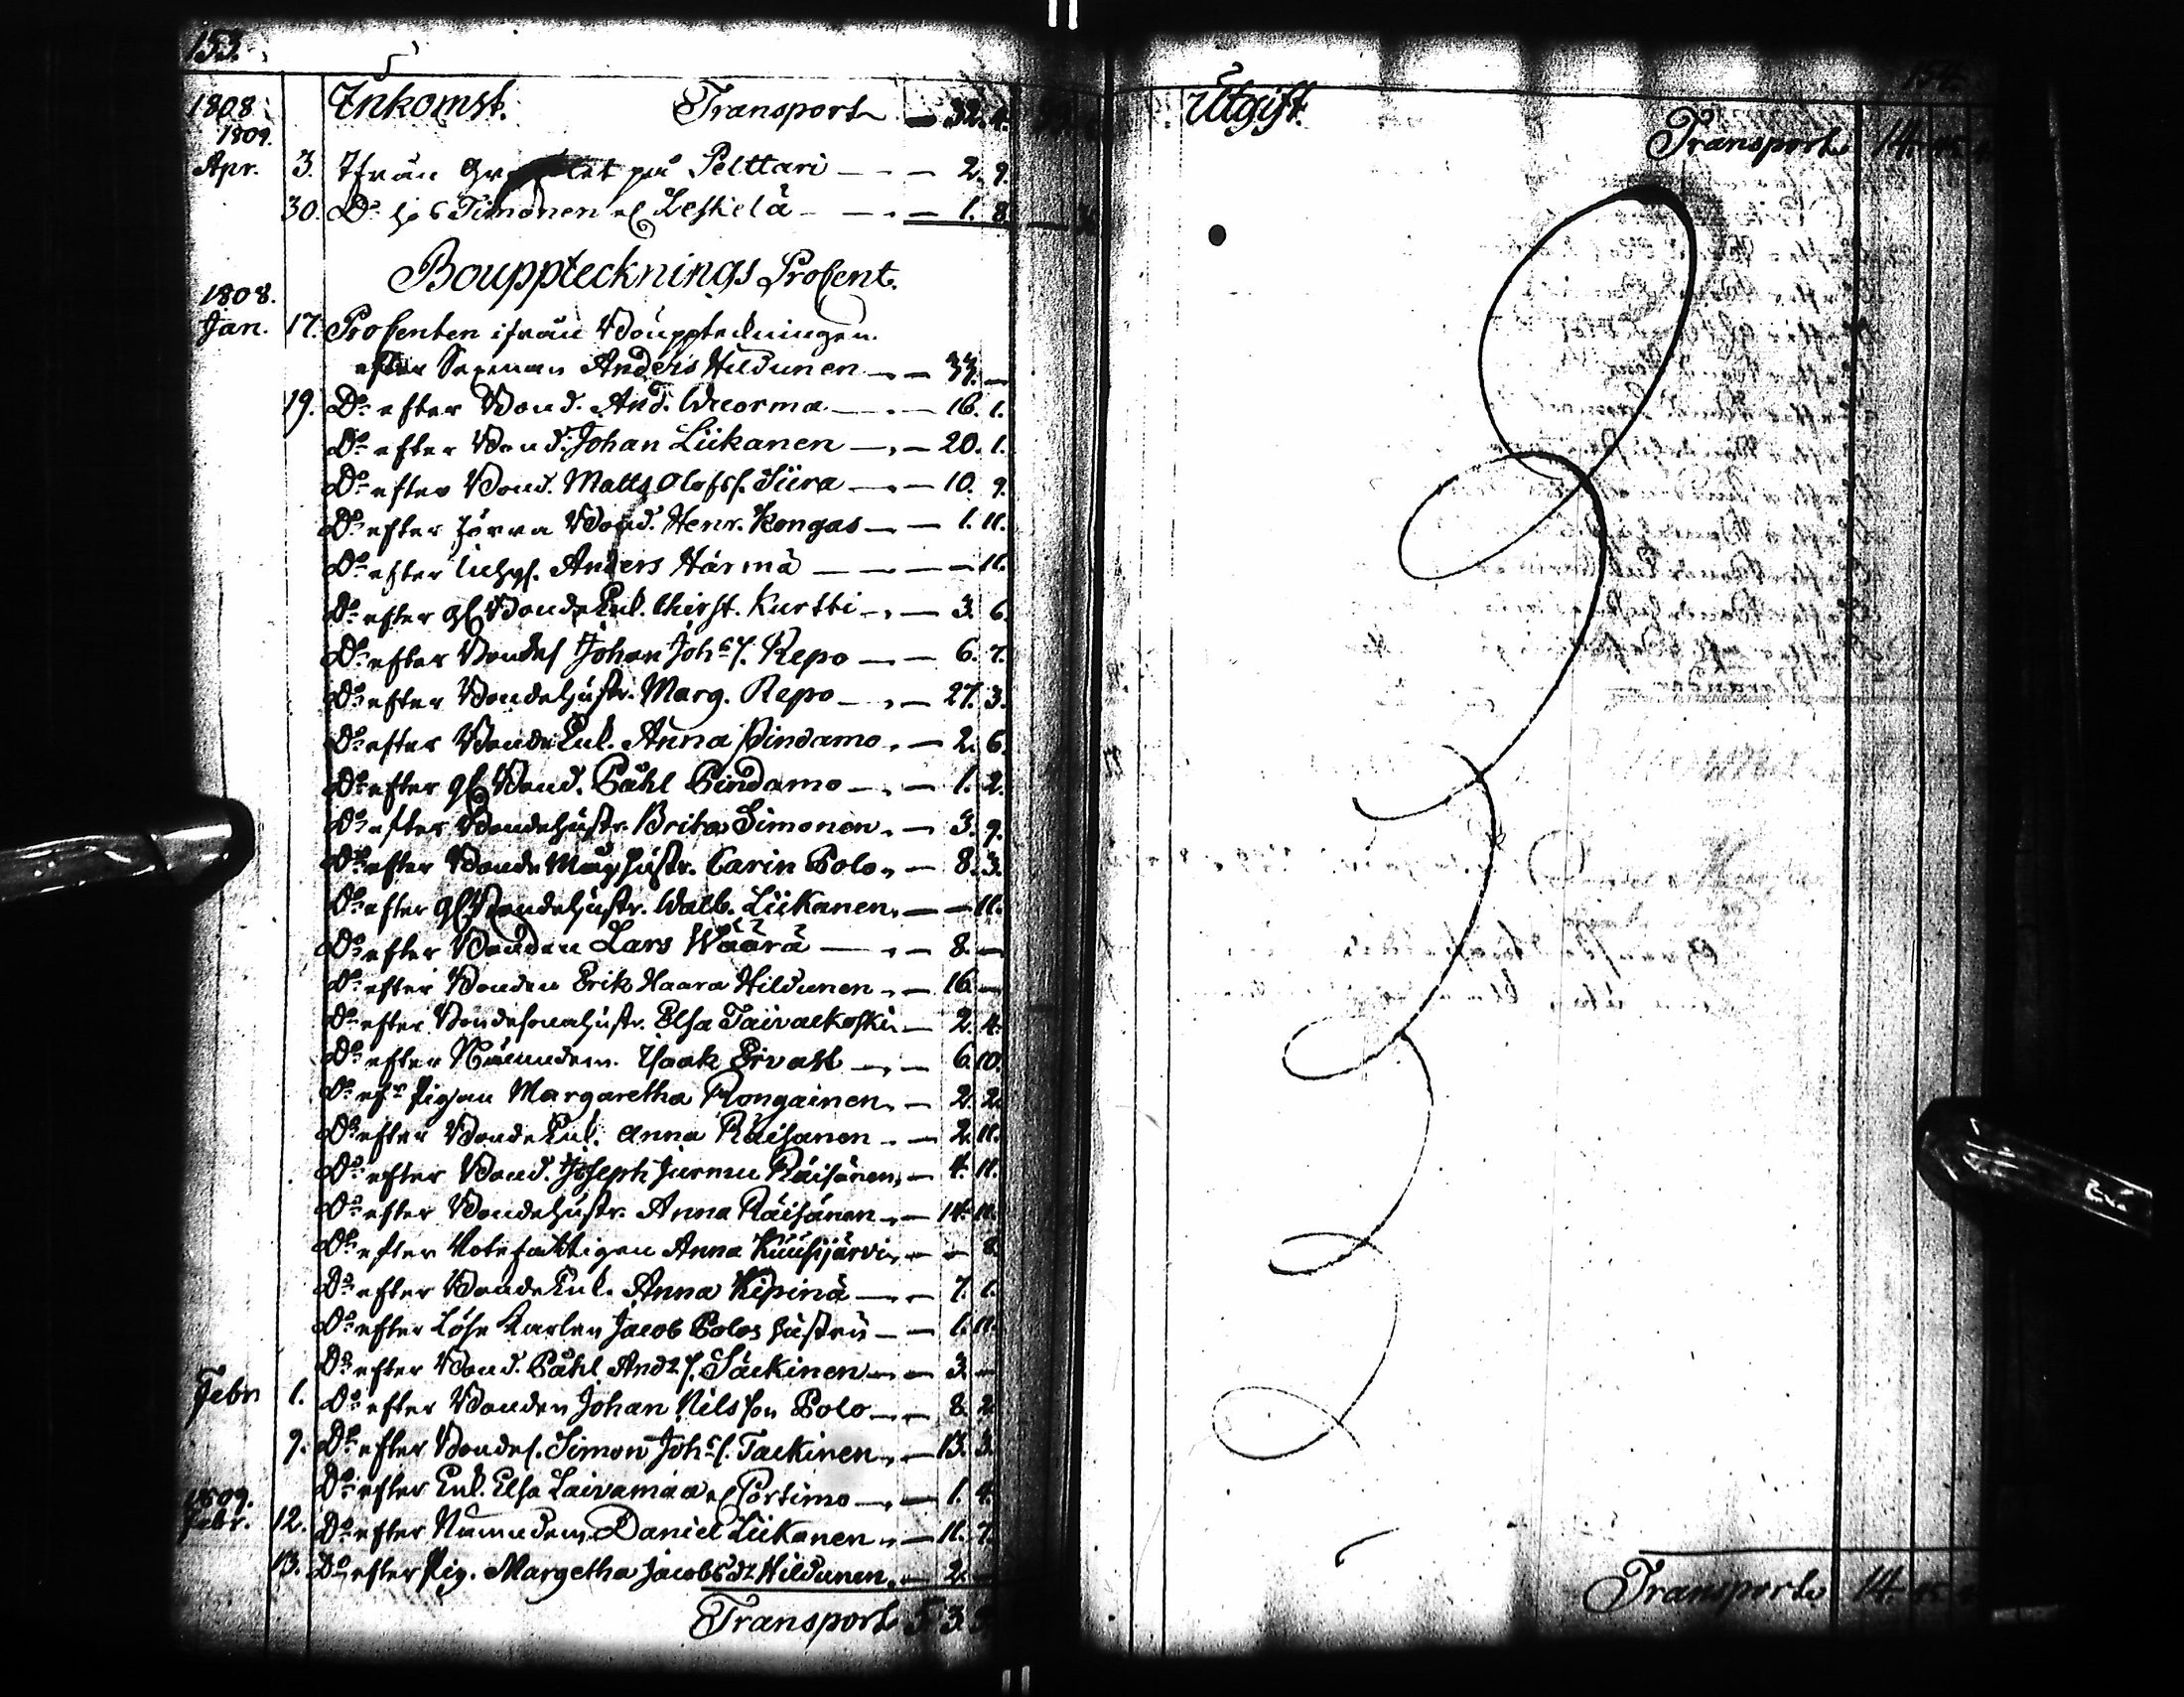 153.
1808. Inkomst. Transport — 32. 4.
1809.
Apr. 3. Ifrån på Pelttari — — 2. 9.
30. Do hos Timonen el. Leskelä — — 1. 8.
Boupptecknings Procent.
1808.
Jan. 17. Procenten ifrån Bouppteckningen
efter Sexman Anders Hildunen — 33. —
19. Do efter Bond. And. Wuorma — 16. 1.
Do efter Bond. Johan Liikanen — 20. 1.
Do efter Bond. Matts Olofss. Siira — 10. 9.
Do efter förra Bond. Henr. Kongas — 1. 11.
Do efter Inhys. Anders Härmä — — 11.
Do efter gl. Bonde Enk. Christ. Kurtti — 3. 6.
Do efter Bondes. Johan Johs s. Repo — 6. 7.
Do efter Bondehustr. Marg. Repo — 27. 3.
Do efter Bonde Enk. Anna Pindamo — 2. 6.
Do efter gl. Bond. Påhl Pindamo — 1. 2.
Do efter Bondehustr. Brita Simonen — 3. 9.
Do efter Bonde Måghustr. Carin Polo — 8. 3.
Do efter gl. Bondehustr. Walb. Liikanen — — 11.
Do efter Bonden Lars Wäärä — 8. —
Do efter Bonden Erik Haara Hildunen — 16. —
Do efter Bondesonahustr. Elsa Taivalkoski — 2. 4.
Do efter Nämndem. Isaak Ervast — 6. 10.
Do eftr Pigan Margaretha Rongainen — 2. 2.
Do efter Bonde Enk. Anna Räisänen — 2. 11.
Do efter Bond. Joseph Jurmu Räisänen — 4. 11.
Do efter Bondehustr. Anna Räisänen — 14. 11.
Do efter Rotefattigen Anna Kuusijärvi — — 8.
Do efter Bonde Enk. Anna Kipinä — 7. 1.
Do efter Löse Karlen Jacob Polos hustru — 1. 11.
Do efter Bond. Påhl Andr s. Säckinen — 3. —
Febr. 1. Do efter Bonden Johan Nilsson Polo — 8. 2.
9. Do efter Bondes. Simon Johs s. Tackinen — 13. 3.
Do efter Enk. Elsa Laivamaa el. Portimo — 1. 4.
1809.
Febr. 12. Do efter Nämndem. Daniel Liikanen — 11. 7.
13. Do efter Pig. Margetha Jacobsdr Hildunen — 2. —
Transport 5 3 3
154.
Utgift.
Transport 14.
Transport 14.